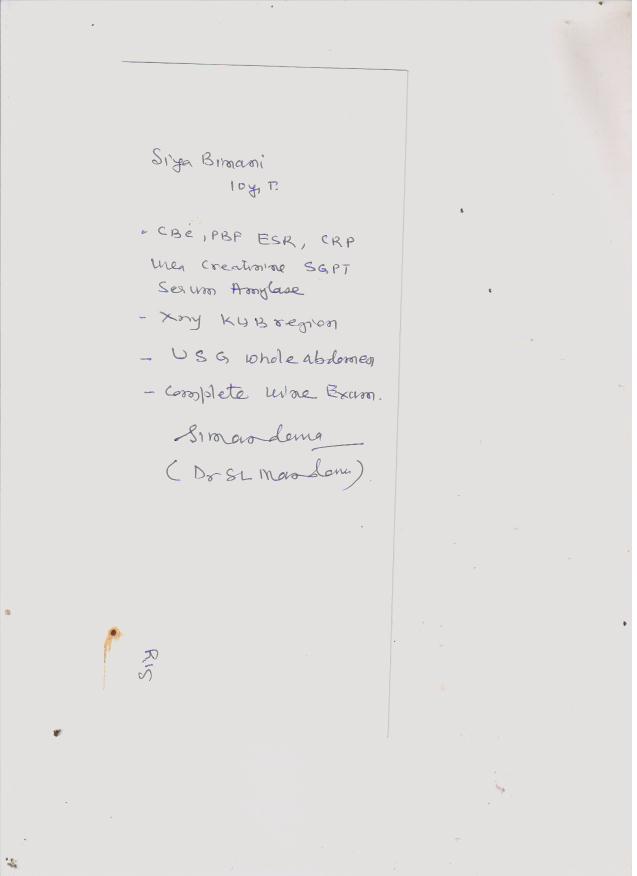 Siya Bimani
10y, F.
- CBC, PBF ESR, CRP
Urea Creatinine SGPT
Serum Amylase
- Xray KUB region
- USG whole abdomen
- Complete urine Exam.
(Dr SL Mandana)
RIS